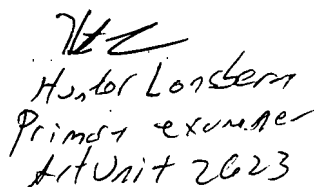 Hunter Lonsberry
Primary examiner
Art Unit 2623